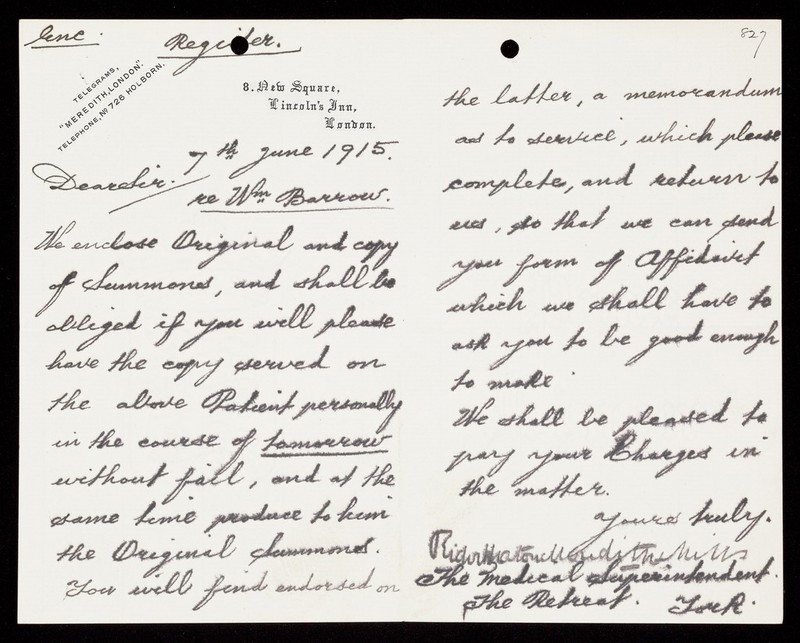 Enc.
Register.
TELEGRAMS,
"MEREDITH, LONDON".
TELEPHONE, No 726 HOLBORN.
8. New Square,
Lincoln's Inn,
London.
7th June 1915.
Dear Sir.
re Wm Barrow.
We enclose Original and copy
of Summons, and shall be
obliged if you will please
have the copy served on
the above Patient personally
in the course of tomorrow
without fail, and at the
same time produce to him
the Original Summons.
You will find endorsed on
827
the latter, a memorandum
as to service, which please
complete, and return to
us, so that we can send
you form of Affidavit
which we shall have to
ask you to be good enough
to make
We shall be pleased to
pay your Charges in
the matter.
Yours truly.
The Medical Superintendent.
The Retreat. York.